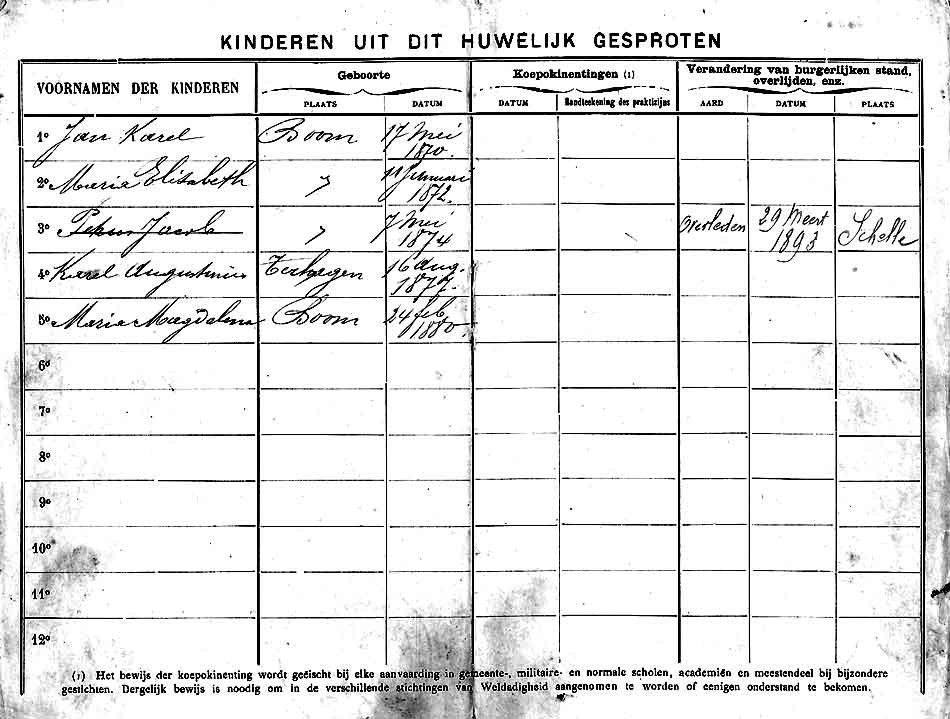 KINDEREN UIT DIT HUWELIJK GESPROTEN
VOORNAMEN DER KINDEREN
Geboorte
Koepokinentingen (1)
Verandering van burgerlijken stand,
overlijden, enz.
PLAATS
DATUM
DATUM
Handteekening des praktizijns
AARD
DATUM
PLAATS
1º Jan Karel Boom 17 Mei
1870.
2º Maria Elisabeth " 11 Januari
1872.
3º Petrus Jacob " 7 Mei
1874 Overleden 29 Meert
1893 Schelle
4º Karel Augustinus Terhagen 16 aug.
1877.
5º Maria Magdalena Boom 24 feb
1880.
6º
7º
8º
9º
10º
11º
12º
(1) Het bewijs der koepokinenting wordt geëischt bij elke aanvaarding in gemeente-, militaire- en normale scholen, academiën en meestendeel bij bijzondere
gestichten. Dergelijk bewijs is noodig om in de verschillende stichtingen van Weldadigheid aangenomen te worden of eenigen onderstand te bekomen.